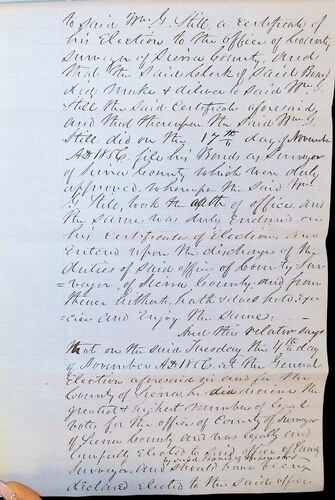 to said Wm. G. Still a certificate of
his Election to the office of County
Surveyor of Sierra County. And
that the said Clerk of said Board
did make & deliver to said Wm G.
Still the said Certificate aforesaid,
and that thereupon the said Wm G.
Still did on the 17th day of November
AD 1856, file his Bonds as Surveyor
of Sierra County which were duly
approved. Whereupon the said Wm
G. Still, took the oath of office and
the same was duly endorsed on
his Certificate of Election, and
entered upon the discharge of the
duties of said office of County Sur-
=veyor, of Sierra County, and from
thence hitherto, hath & does hold exer
=cise and Enjoy the same;
And this relator says
that on the said Tuesday the 4th day
of November AD 1856, at the General
Election aforesaid in and for the
County of Sierra, he did receive the
greatest & highest number of legal
votes for the office of County Surveyor
of Sierra County and was legally and
lawfully Elected to said office of County
Surveyor and should have been
declared Elected to said office